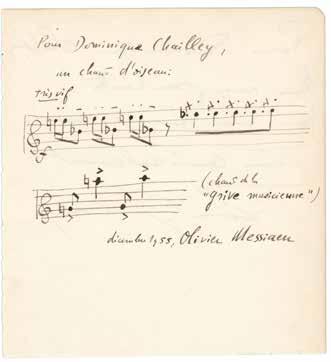 Pour Dominique Chailley,
un chant d'oiseau:
très vif
f
(chant de la
"grive musicienne")
décembre 1955, Olivier Messiaen